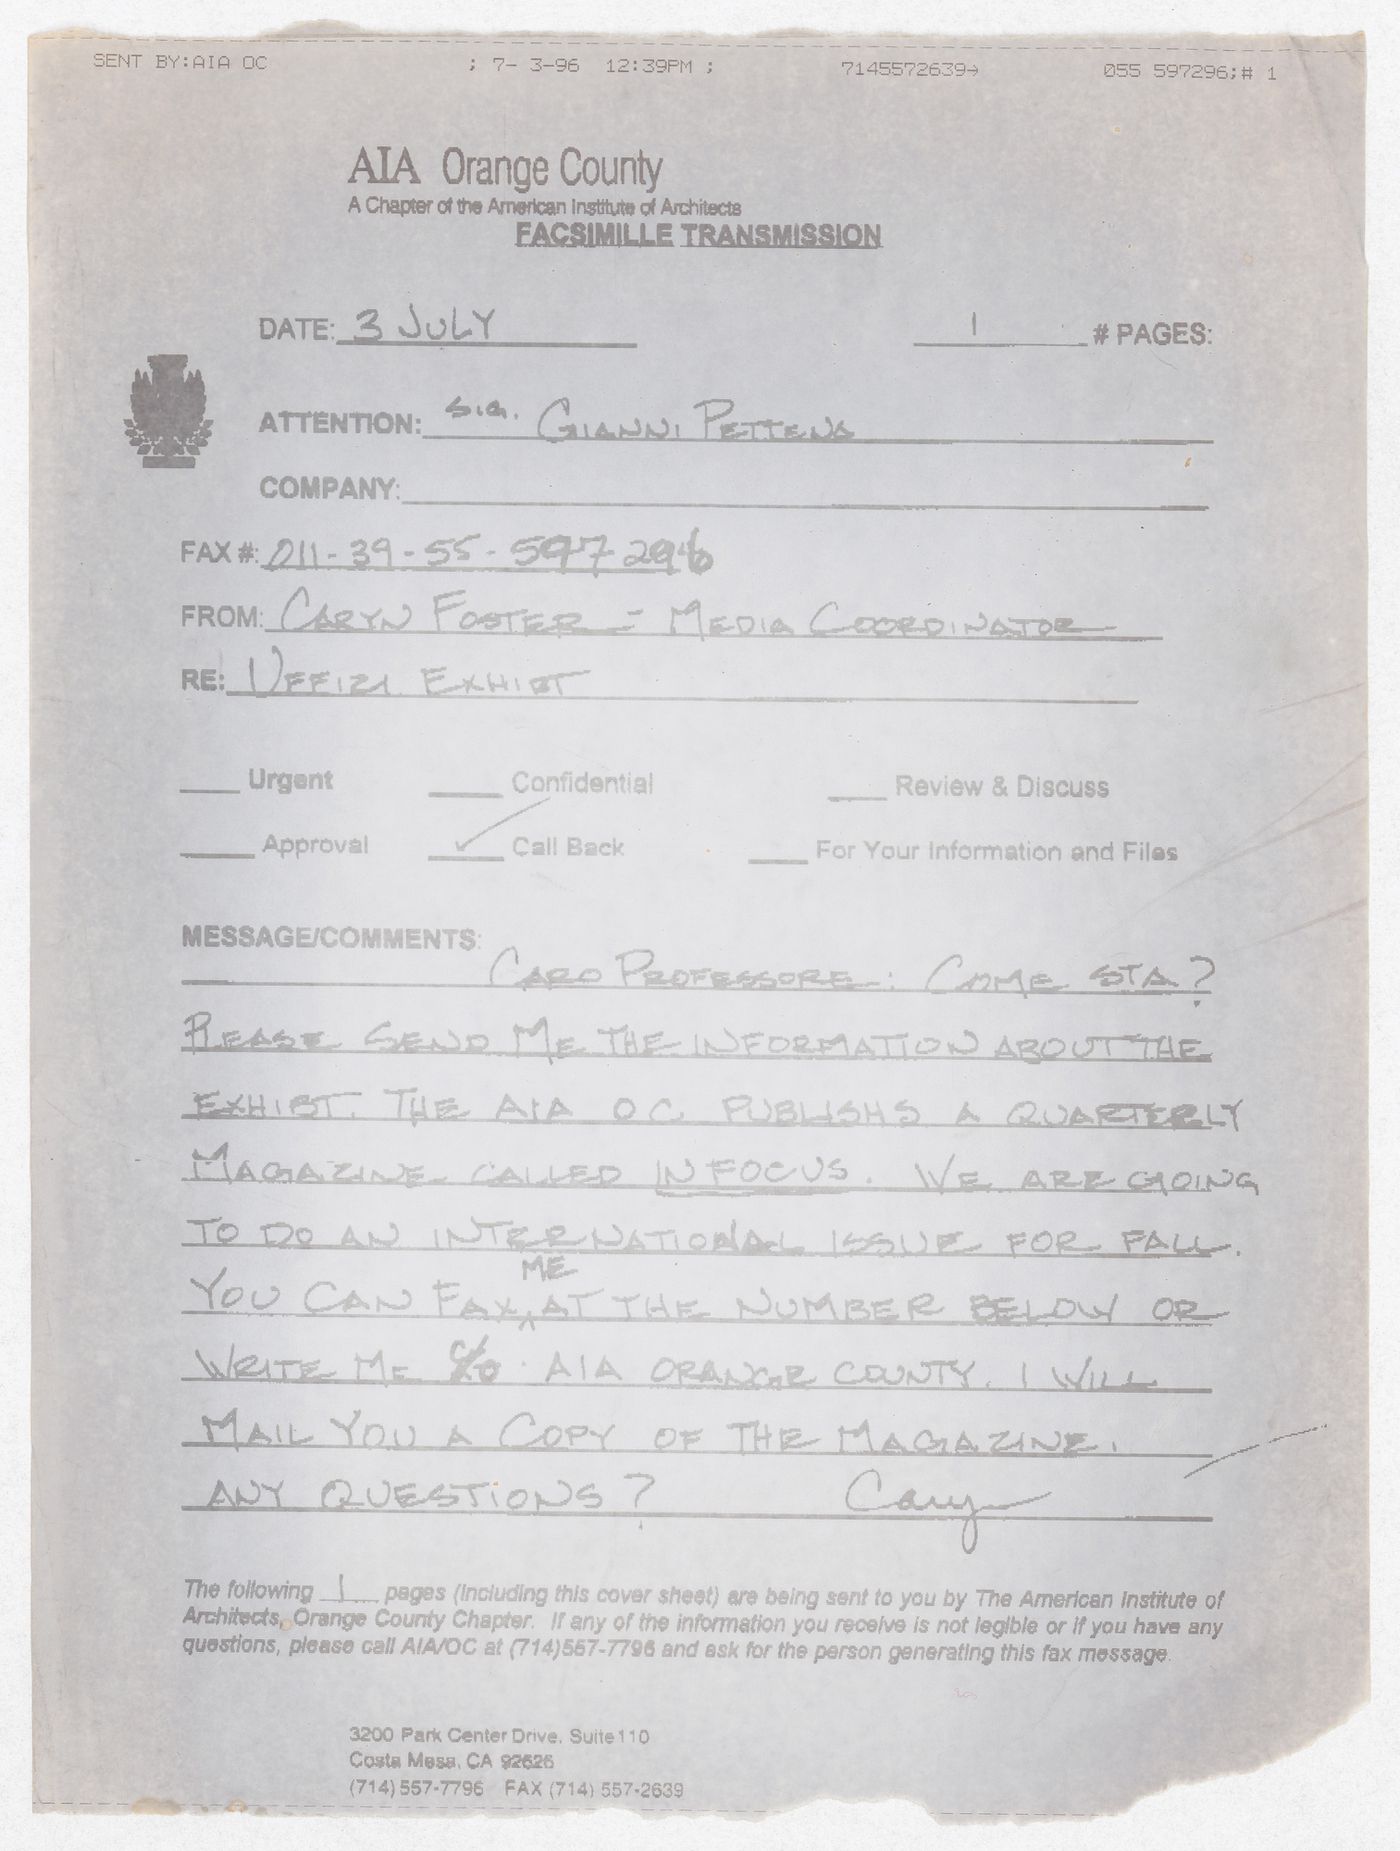 SENT BY:AIA OC ; 7- 3-96 12:39PM ; 7145572639→ 055 597296;# 1
AIA Orange County
A Chapter of the American Institute of Architects
FACSIMILLE TRANSMISSION
DATE: 3 JULY 1 # PAGES:
ATTENTION: SIG. GIANNI PETTENA
COMPANY:
FAX #: 011-39-55-597296
FROM: CARYN FOSTER - MEDIA COORDINATOR
RE: UFFIZI EXHIBT
Urgent Confidential Review & Discuss
Approval ✓ Call Back For Your Information and Files
MESSAGE/COMMENTS:
CARO PROFESSORE: COME STA?
PLEASE SEND ME THE INFORMATION ABOUT THE
EXHIBT. THE AIA OC PUBLISHS A QUARTERLY
MAGAZINE CALLED IN FOCUS. WE ARE GOING
TO DO AN INTERNATIONAL ISSUE FOR FALL.
YOU CAN FAX ME AT THE NUMBER BELOW OR
WRITE ME C/O AIA ORANGE COUNTY. I WILL
MAIL YOU A COPY OF THE MAGAZINE.
ANY QUESTIONS? Caryn
The following 1 pages (including this cover sheet) are being sent to you by The American Institute of
Architects, Orange County Chapter. If any of the information you receive is not legible or if you have any
questions, please call AIA/OC at (714)557-7796 and ask for the person generating this fax message.
3200 Park Center Drive, Suite 110
Costa Mesa, CA 92626
(714) 557-7796 FAX (714) 557-2639